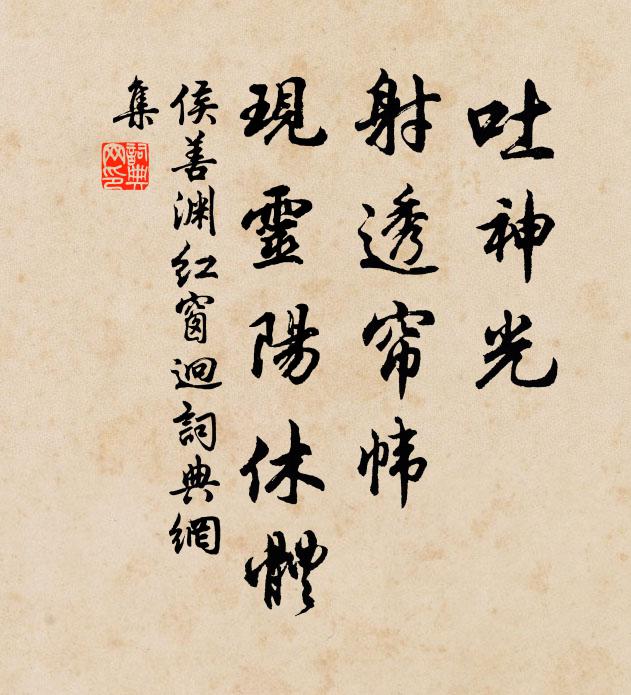 吐神光
射透帘帏
現靈陽休體
侯善渊红窗迥詞典網
集
詞典網印